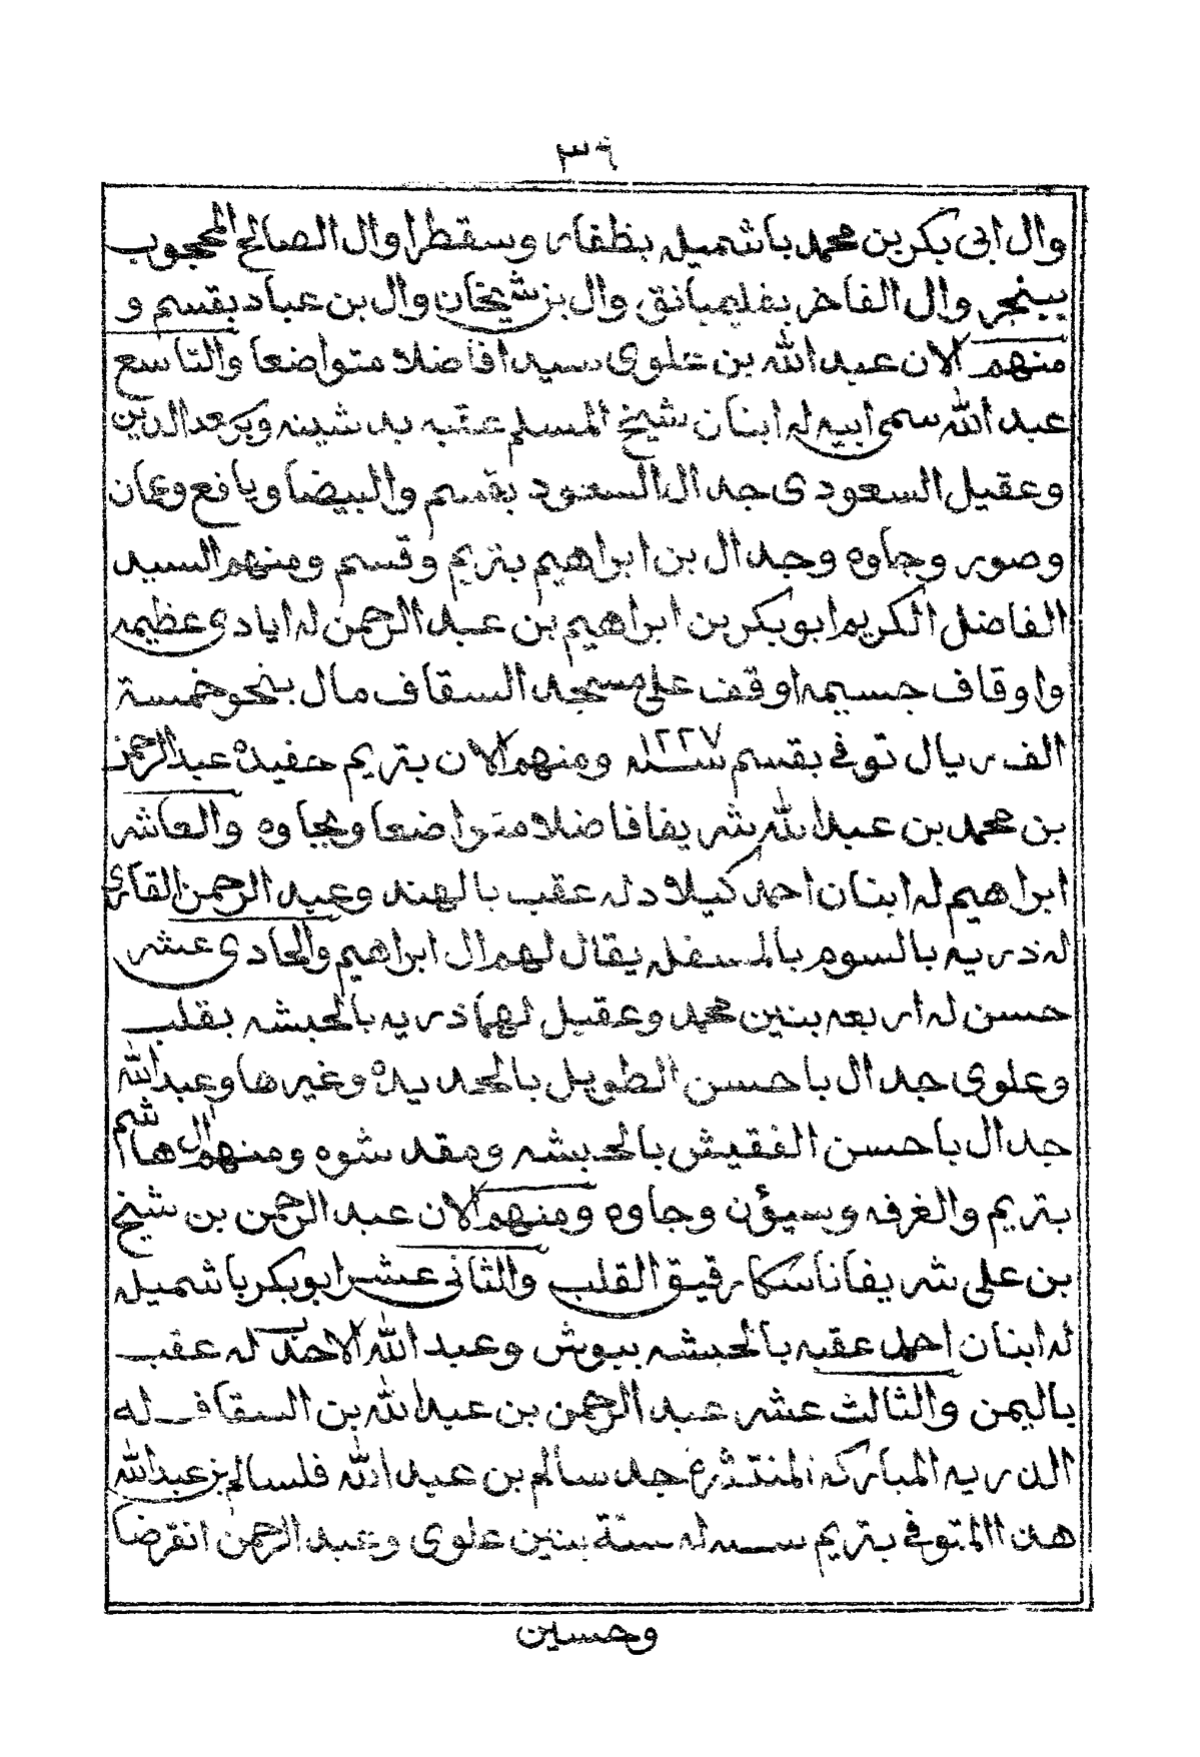 ٣٦
وال ابى بكر بن محمد باشميله بظفار وسقطرا وال الصالح المحجوب
ببنجر وال الفاخر بفليمبانق وال بن شيخان وال بن عباد بقسم و
منهم الان عبد الله بن علوى سيدا فاضلا متواضعا والتاسع
عبد الله سمى ابيه له ابنان شيخ المسلم عقبه بدشينه وبكرعد الدين
وعقيل السعودى جد ال السعود بقسم والبيضا ويافع وعمان
وصور وجاوه وجد ال بن ابراهيم بتريم وقسم ومنهم السيد
الفاضل الكريم ابو بكر بن ابراهيم بن عبد الرحمن له ايادى عظيمه
واوقاف جسيمه اوقف على مسجد السقاف مال بنحو خمسة
الف ريال توفي بقسم سنه ١٢٢٧ ومنهم الان بتريم حفيده عبد الرحمن
بن محمد بن عبد الله شريفا فاضلا متواضعا وبجاوه والعاشر
ابراهيم له ابنان احمد كيلاد له عقب بالهند وعبد الرحمن القارى
له ذريه بالسوم بالمسفله يقال لهم ال ابراهيم والحادى عشر
حسن له اربعه بنين محمد وعقيل لهما ذريه بالحبشه بقلب
وعلوى جد ال باحسن الطويل بالحديده وغيرها وعبد الله
جد ال باحسن الفقيش بالحبشه ومقد شوه ومنهم ال هاشم
بتريم والغرفه وسيؤن وجاوه ومنهم الان عبد الرحمن بن شيخ
بن على شريفا ناسكا رقيق القلب والثانى عشر ابو بكر باشميله
له ابنان احمد عقبه بالحبشه ببوش وعبد الله الاحدب له عقب
باليمن والثالث عشر عبد الرحمن بن عبد الله بن السقاف له
الذريه المباركه المنتشرة جد سالم بن عبد الله فلسالم بن عبد الله
هذا المتوفي بتريم سنه له ستة بنين علوى وعبد الرحمن انقرضا
وحسين